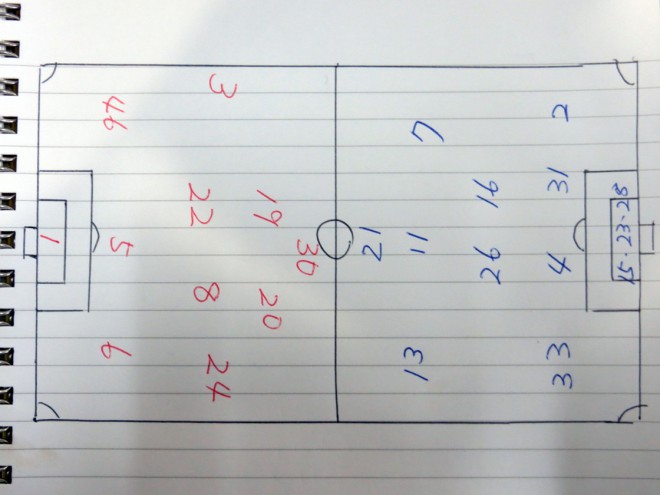 3
46
22
19
1
5
30
8
20
6
24
2
7
31
16
15·23·28
21
11
26
4
13
33